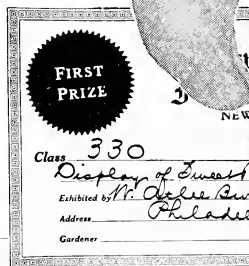 FIRST
PRIZE
NEW
Class 330
Display of Sweet
Exhibited by W. Atlee Bur
Address Philadel
Gardener